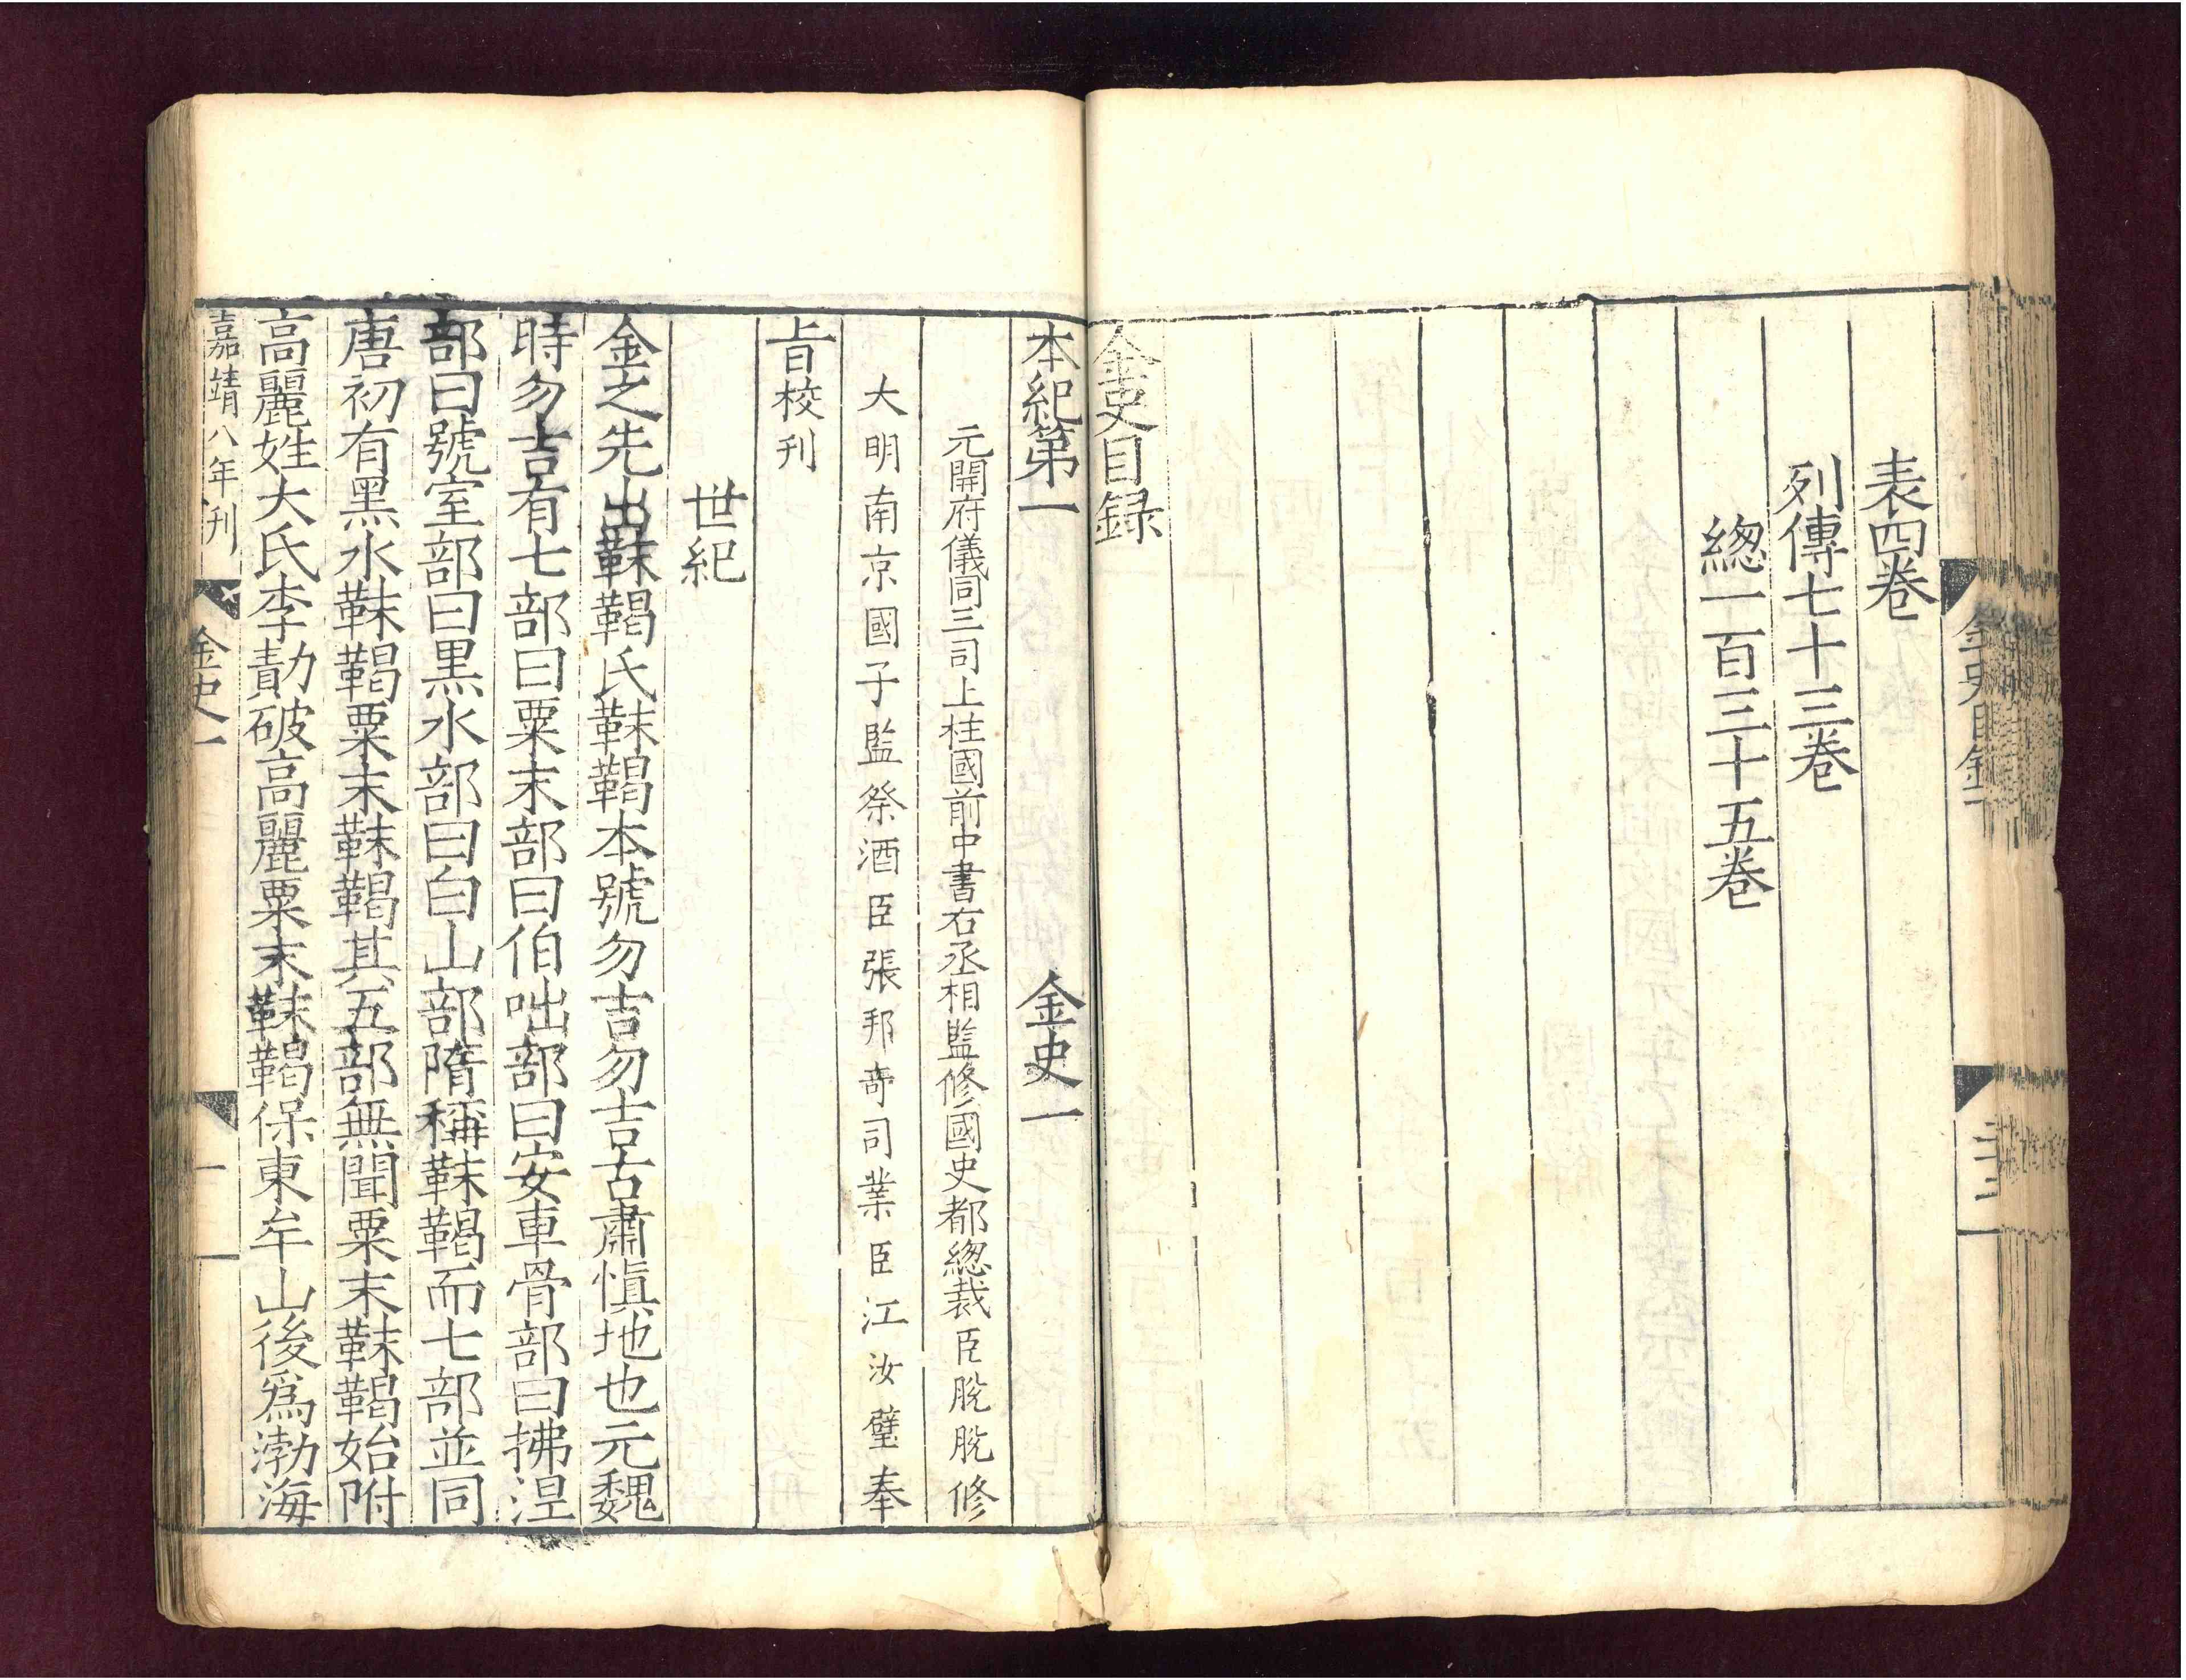 金史目錄
二十二
表四卷
列傳七十三卷
緫一百三十五卷
金史目録
本紀第一 金史一
元開府儀同三司上柱國前中書右丞相監修國史都緫裁臣脫脫修
大明南京國子監祭酒臣張邦奇司業臣江汝璧奉
旨校刊
世紀
金之先出靺鞨氏靺鞨本號勿吉勿吉古肅愼地也元魏
時勿吉有七部曰粟末部曰伯咄部曰安車骨部曰拂涅
部曰號室部曰黒水部曰白山部隋稱靺鞨而七部並同
唐初有黑水靺鞨粟末靺鞨其五部無聞粟末靺鞨始附
高麗姓大氏李勣破高麗粟末靺鞨保東牟山後爲渤海
嘉靖八年刋
金史一
一